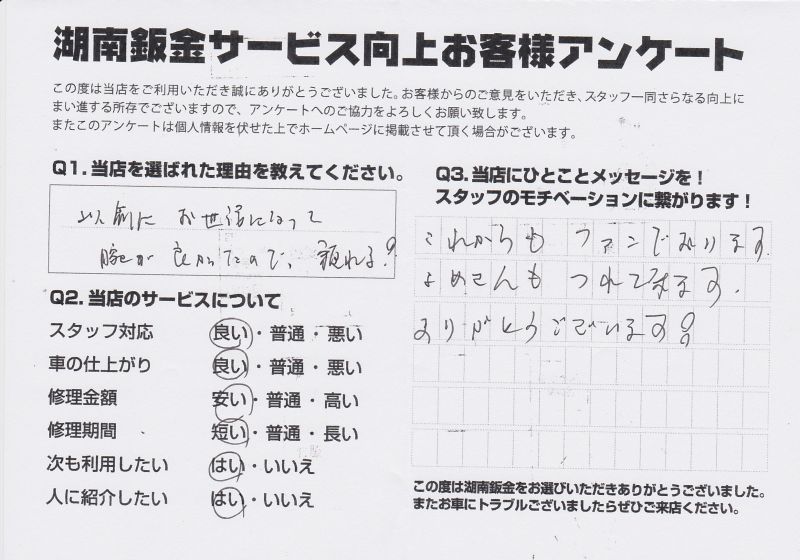 湖南鈑金サービス向上お客様アンケート
この度は当店をご利用いただき誠にありがとうございました。お客様からのご意見をいただき、スタッフ一同さらなる向上に
まい進する所存でございますので、アンケートへのご協力をよろしくお願い致します。
またこのアンケートは個人情報を伏せた上でホームページに掲載させて頂く場合がございます。
Q1.当店を選ばれた理由を教えてください。
以前に お世話になって
腕が 良かったので、頼れる!
Q2.当店のサービスについて
スタッフ対応 良い・普通・悪い
車の仕上がり 良い・普通・悪い
修理金額 安い・普通・高い
修理期間 短い・普通・長い
次も利用したい はい・いいえ
人に紹介したい はい・いいえ
Q3.当店にひとことメッセージを!
スタッフのモチベーションに繋がります!
これからも ファンであります
よめさんも つれてきます.
ありがとうございます!
この度は湖南鈑金をお選びいただきありがとうございました。
またお車にトラブルございましたらぜひご来店ください。